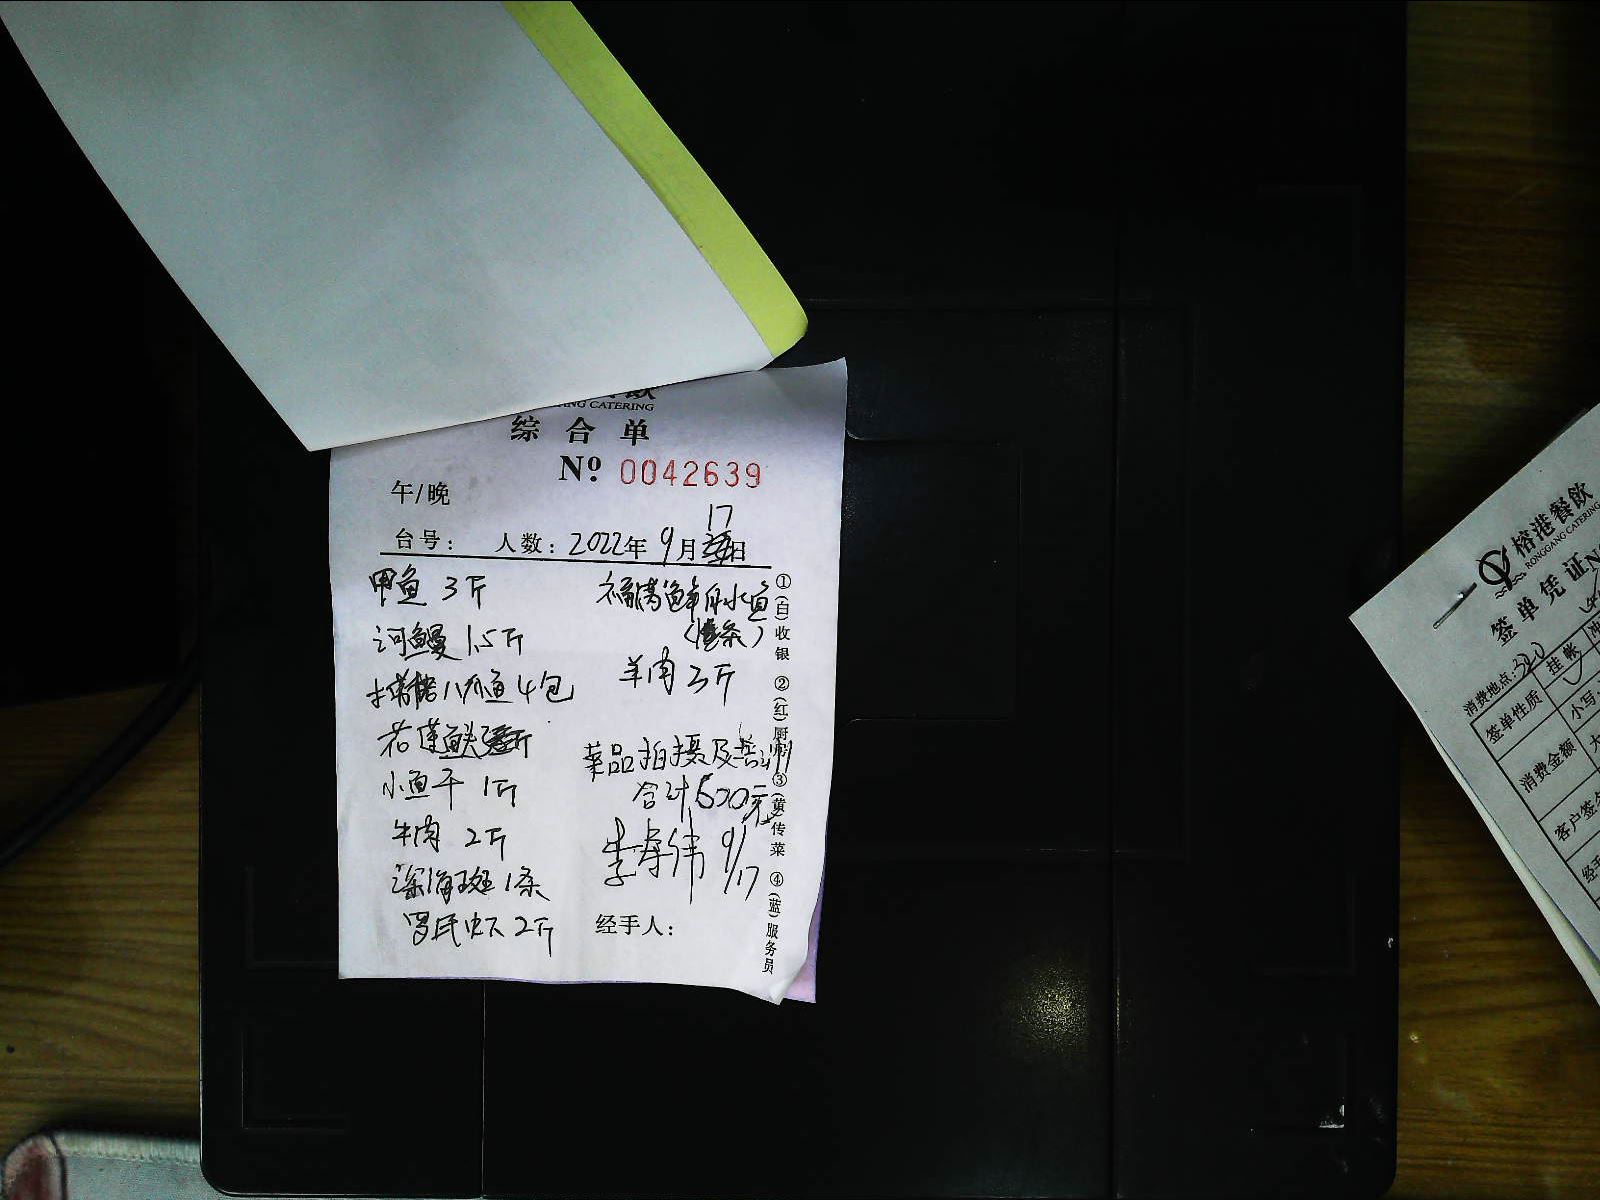 CATERING
综合单
Nº 0042639
午/晚
台号: 人数: 2022年 9月17日
甲鱼 3斤
河鳗 1.5斤
八爪鱼 4包
小鱼干 1斤
牛肉 2斤
深海斑 1条
罗氏虾 2斤
羊肉 3斤
菜品拍摄及
合计 600元
9/17
经手人:
①(白)收银 ②(红)厨 ③(黄)传菜 ④(蓝)服务员
榕港餐飲
RONGGANG CATERING
签单凭证
消费地点:320
签单性质 挂帐
消费金额 小写
大
客户签
经手